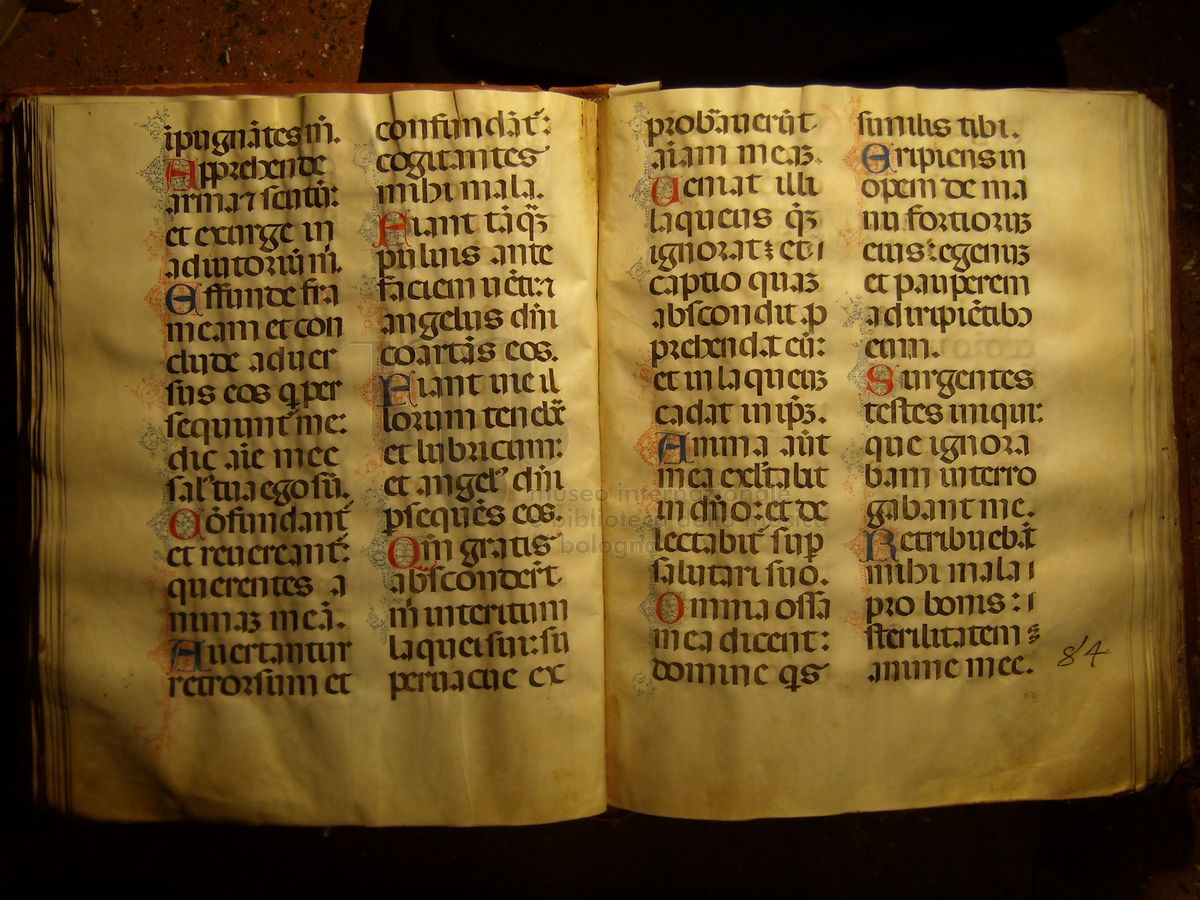 ipugnãtes m̃.
Apprehende
arma ⁊ scutũ:
et exurge in
adiutoriũ m̃.
Effunde fra
meam et con
clude aduer
sus eos q per
sequunt᷑ me:
dic aĩe mee
sal᷑ tua ego sũ.
Cõfundant᷑
et reuereant᷑:
querentes a
nimaꝫ meã.
Auertantur
retrorsum et
confundãt᷑:
cogitantes
mihi mala.
Fiant tãqꝫ
puluis ante
faciem uẽti: ⁊
angelus dñi
coartãs eos.
Fiant uie il
lorum tenebꝛ̃
et lubricum:
et angel᷒ dñi
ꝑsequẽs eos.
Qm̃ gratis
absconder̃t
m̃ interitum
laquei sui: su
peruacue ex
probãuerũt
aĩam meaꝫ.
Ueniat illi
laqueus qꝫ
ignorat: et
captio quaꝫ
abscondit ap
prehendat eũ:
et in laqueuꝫ
cadat in ip̃ꝫ.
Anima aũt
mea exultabit
in dño: et de
lectabit᷑ suꝑ
salutari suo.
Omnia ossa
mea dicent:
domine qs
similis tibi.
Eripiens in
opem de ma
nu fortioruꝫ
eius: egenuꝫ
et pauperem
a diripiẽtibꝰ
eum.
Surgentes
testes iniqui:
que ignora
bam interro
gabant me.
Retribuebãt
mihi mala
pro bonis:
sterilitatem
anime mee.
84
museo internazionale
biblioteca della musica
bologna